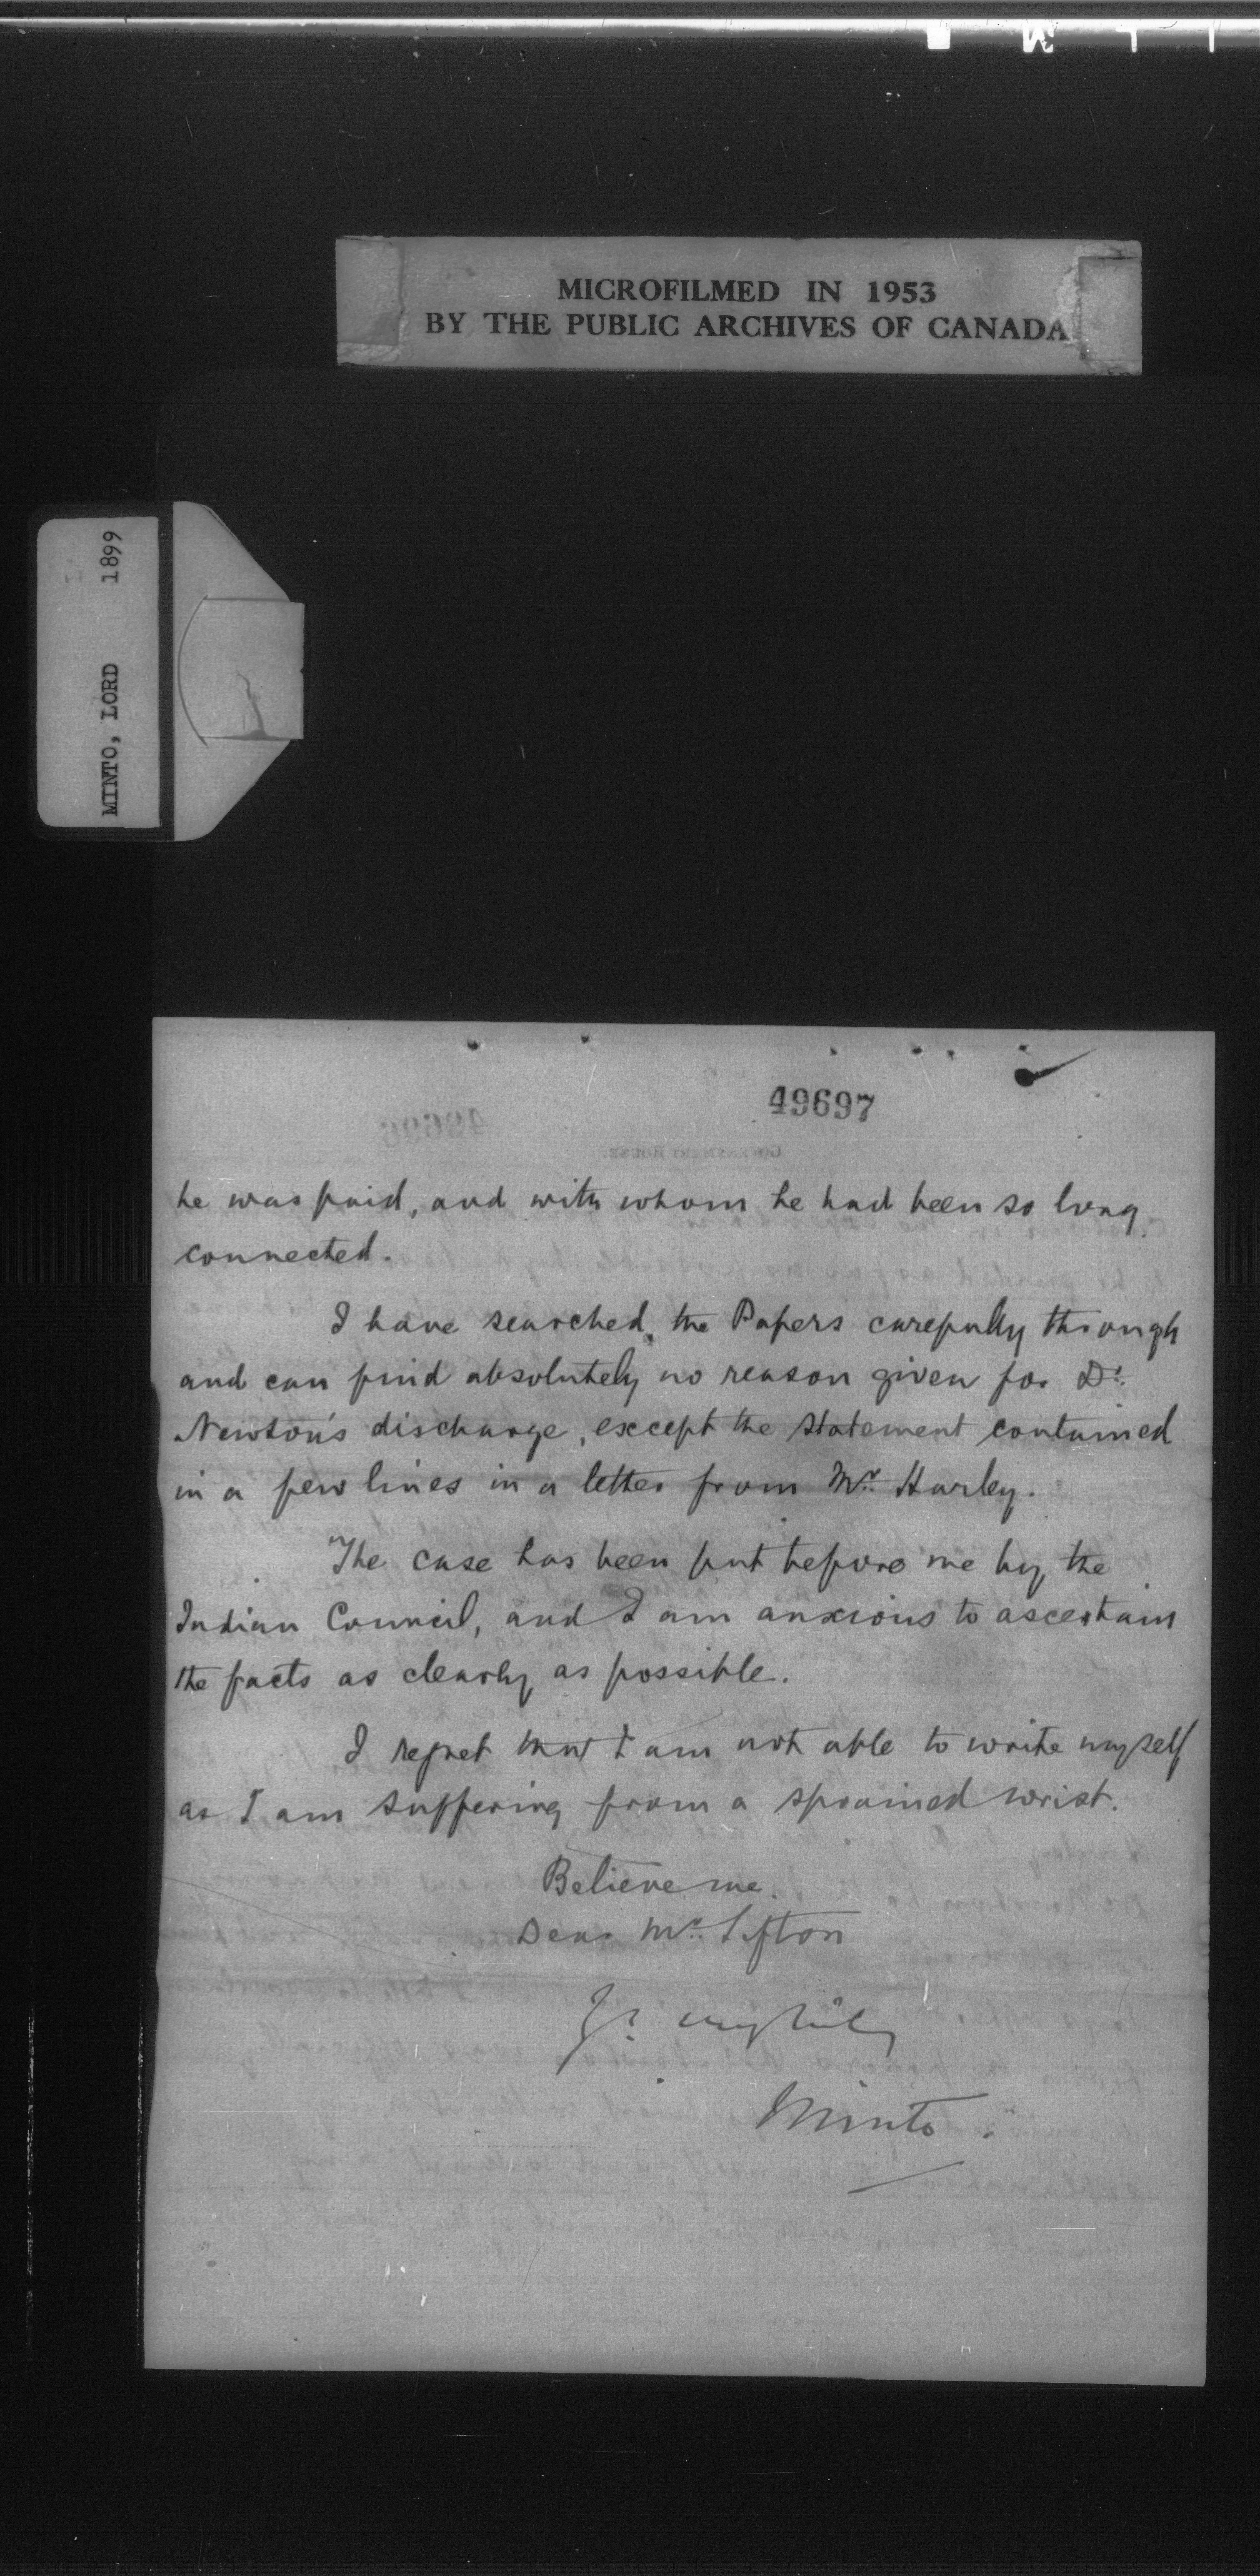 MICROFILMED IN 1953
BY THE PUBLIC ARCHIVES OF CANADA
MINTO, LORD 1899
49697
GOVERNMENT HOUSE.
he was paid, and with whom he had been so long
connected.
I have searched the Papers carefully through
and can find absolutely no reason given for Dr.
Newton's discharge, except the statement contained
in a few lines in a letter from Mr. Harley.
The case has been put before me by the
Indian Council, and I am anxious to ascertain
the facts as clearly as possible.
I regret that I am not able to write myself
as I am suffering from a sprained wrist.
Believe me.
Dear Mr. Sifton
Yr. very truly
Minto.